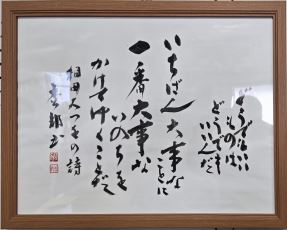 どうでもいい
ものは
どうでも
いいんだ
いちばん大事な
ことに
一番大事な
いのちを
かけてゆくことだ
相田みつをの詩